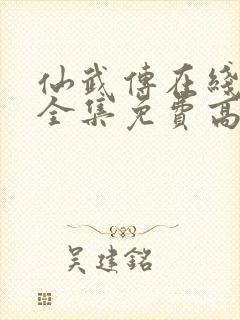 仙武傳在綫
全集免費高
吴建銘